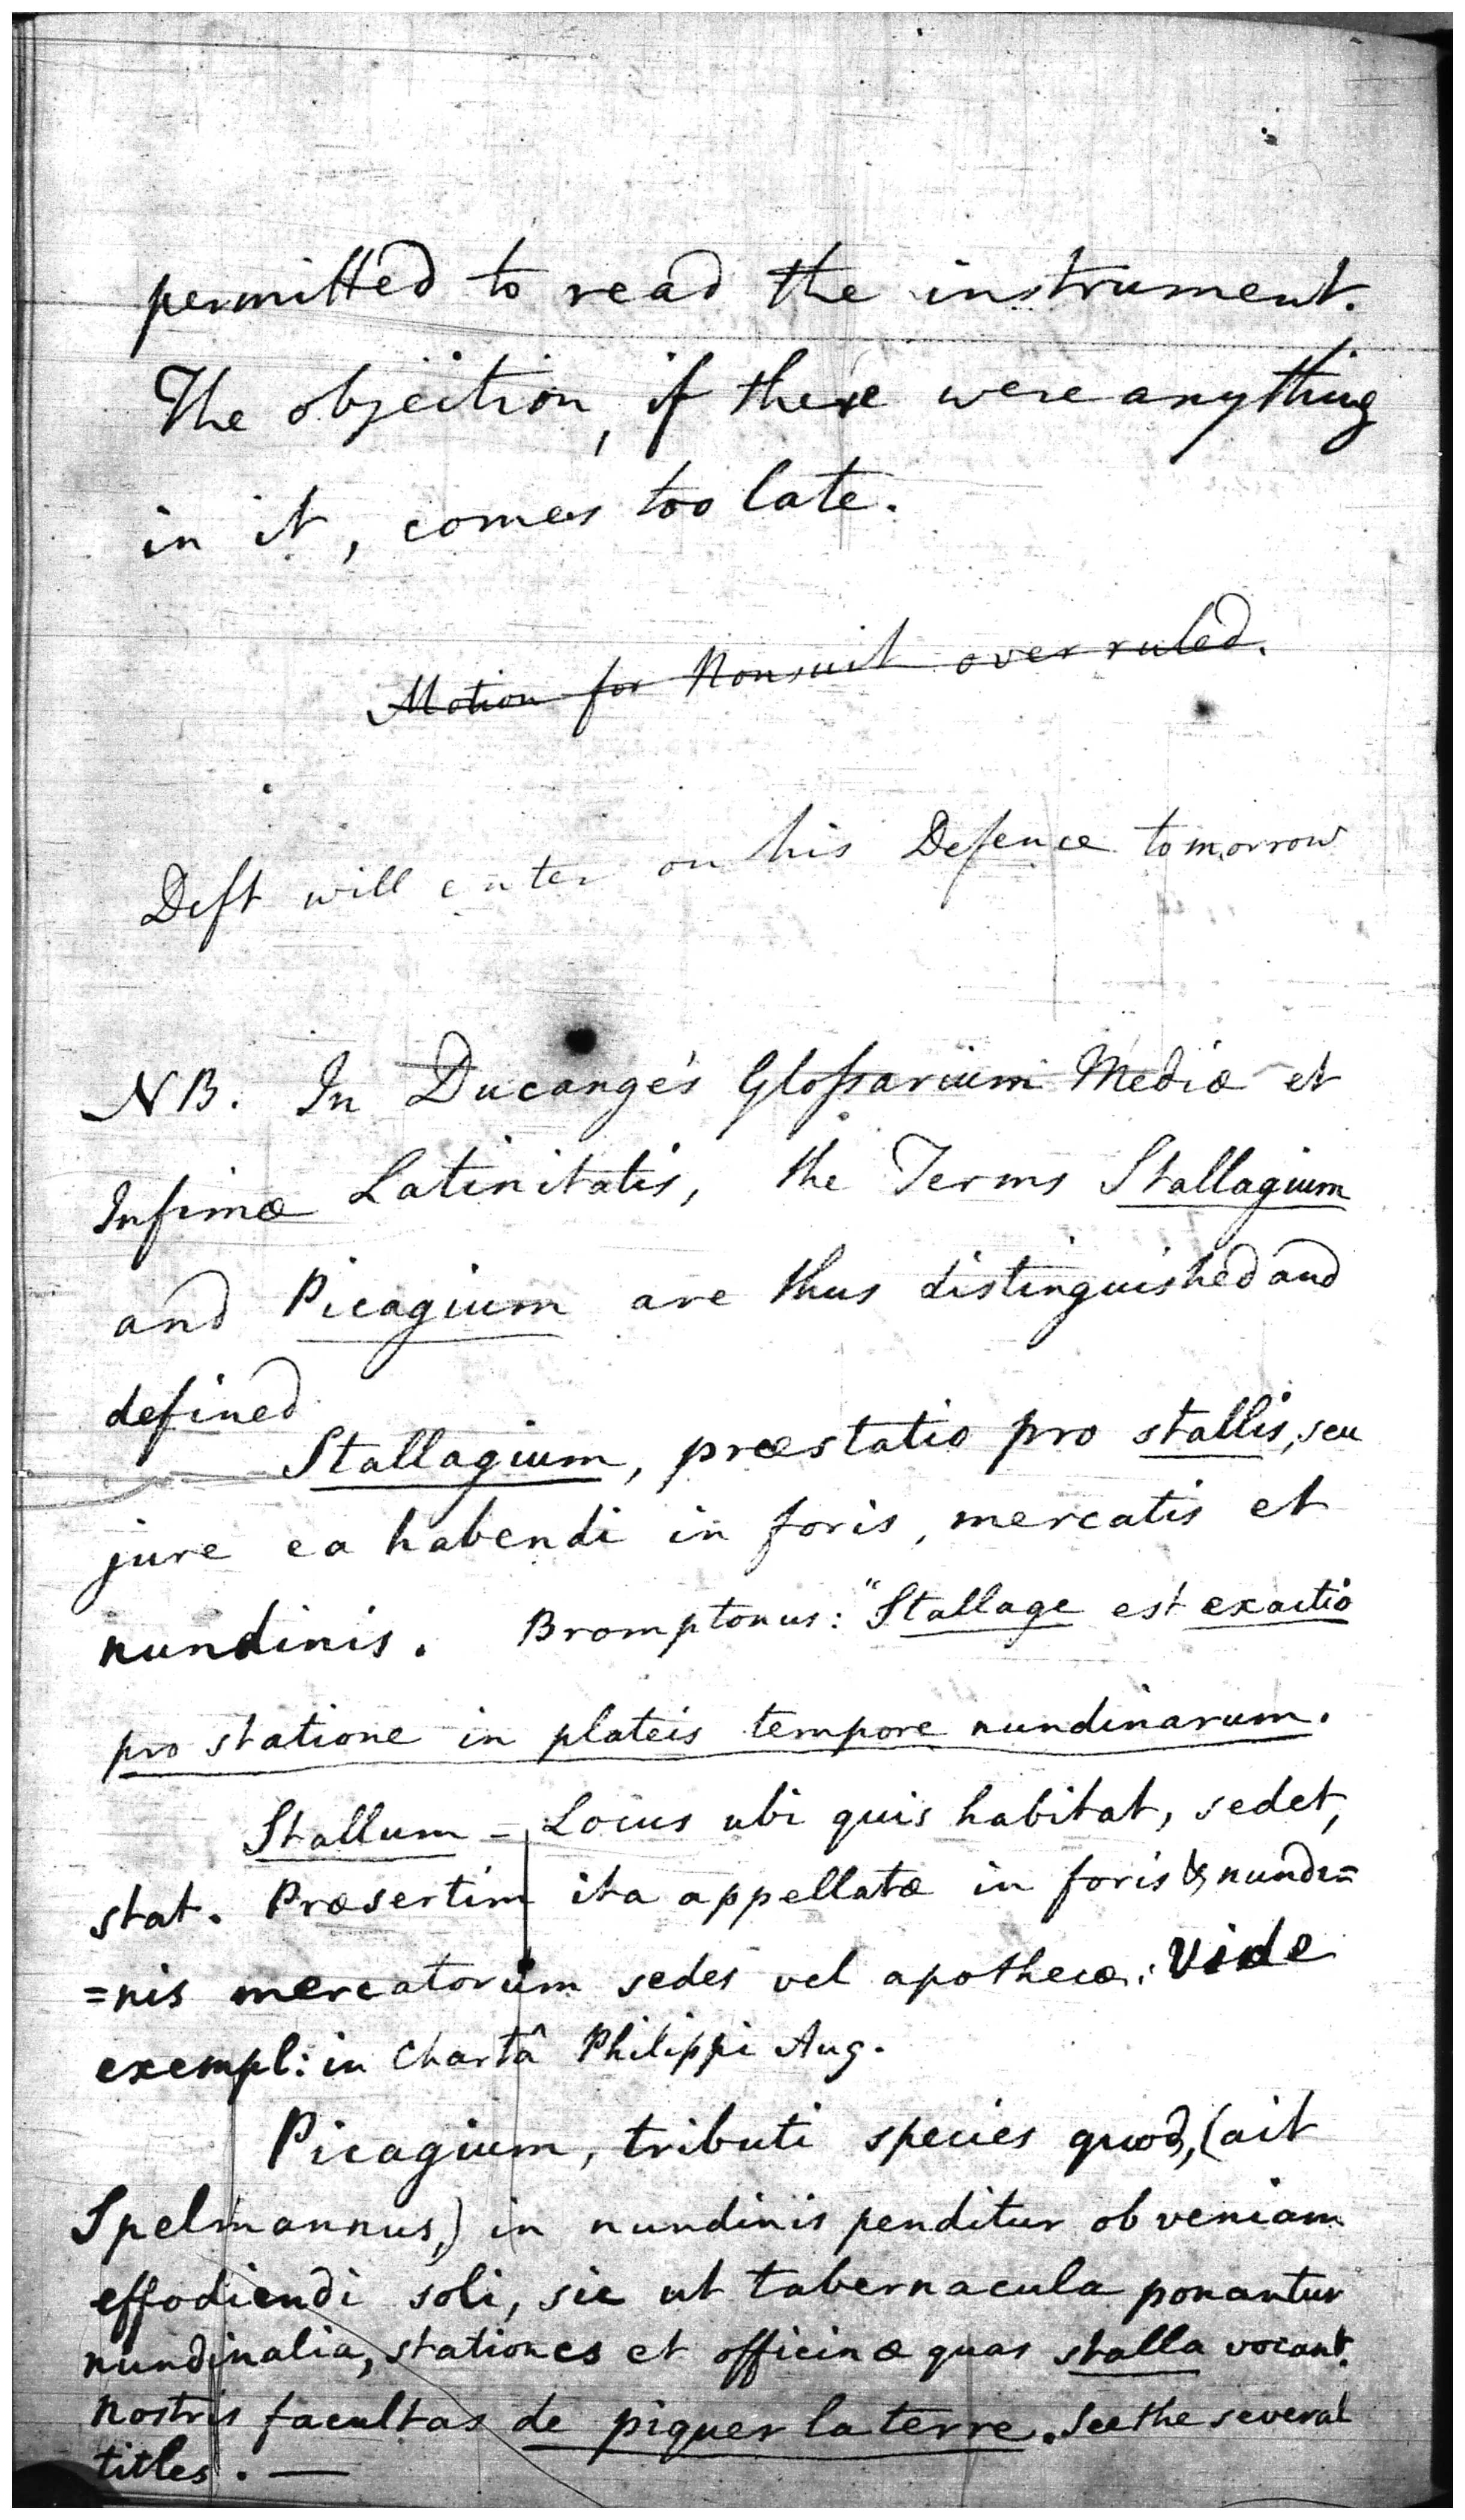 permitted to read the instrument.
The objection, if there were anything
in it, comes too late.
Motion for Nonsuit overruled.
Deft will enter on his Defence tomorrow
NB. In Ducange's Glossarium Mediæ et
Infimæ Latinitatis, the Terms Stallagium
and Picagium are thus distinguished and
defined
Stallagium, præstatio pro stallis, seu
jure ea habendi in foris, mercatis et
nundinis. Bromptonus: "Stallage est exactio
pro statione in plateis tempore nundinarum.
Stallum - Locus ubi quis habitat, sedet,
stat. Præsertim ita appellatæ in foris & nundi=
=nis mercatorum sedes vel apothecæ: Vide
exempl: in Chartâ Philippi Aug.
Picagium, tributi species quod, (ait
Spelmannus,) in nundinis penditur ob veniam
effodiendi soli, sic ut tabernacula ponantur
nundinalia, stationes et officinæ quas stalla vocant.
Nostris facultas de piquer la terre. See the several
titles. —